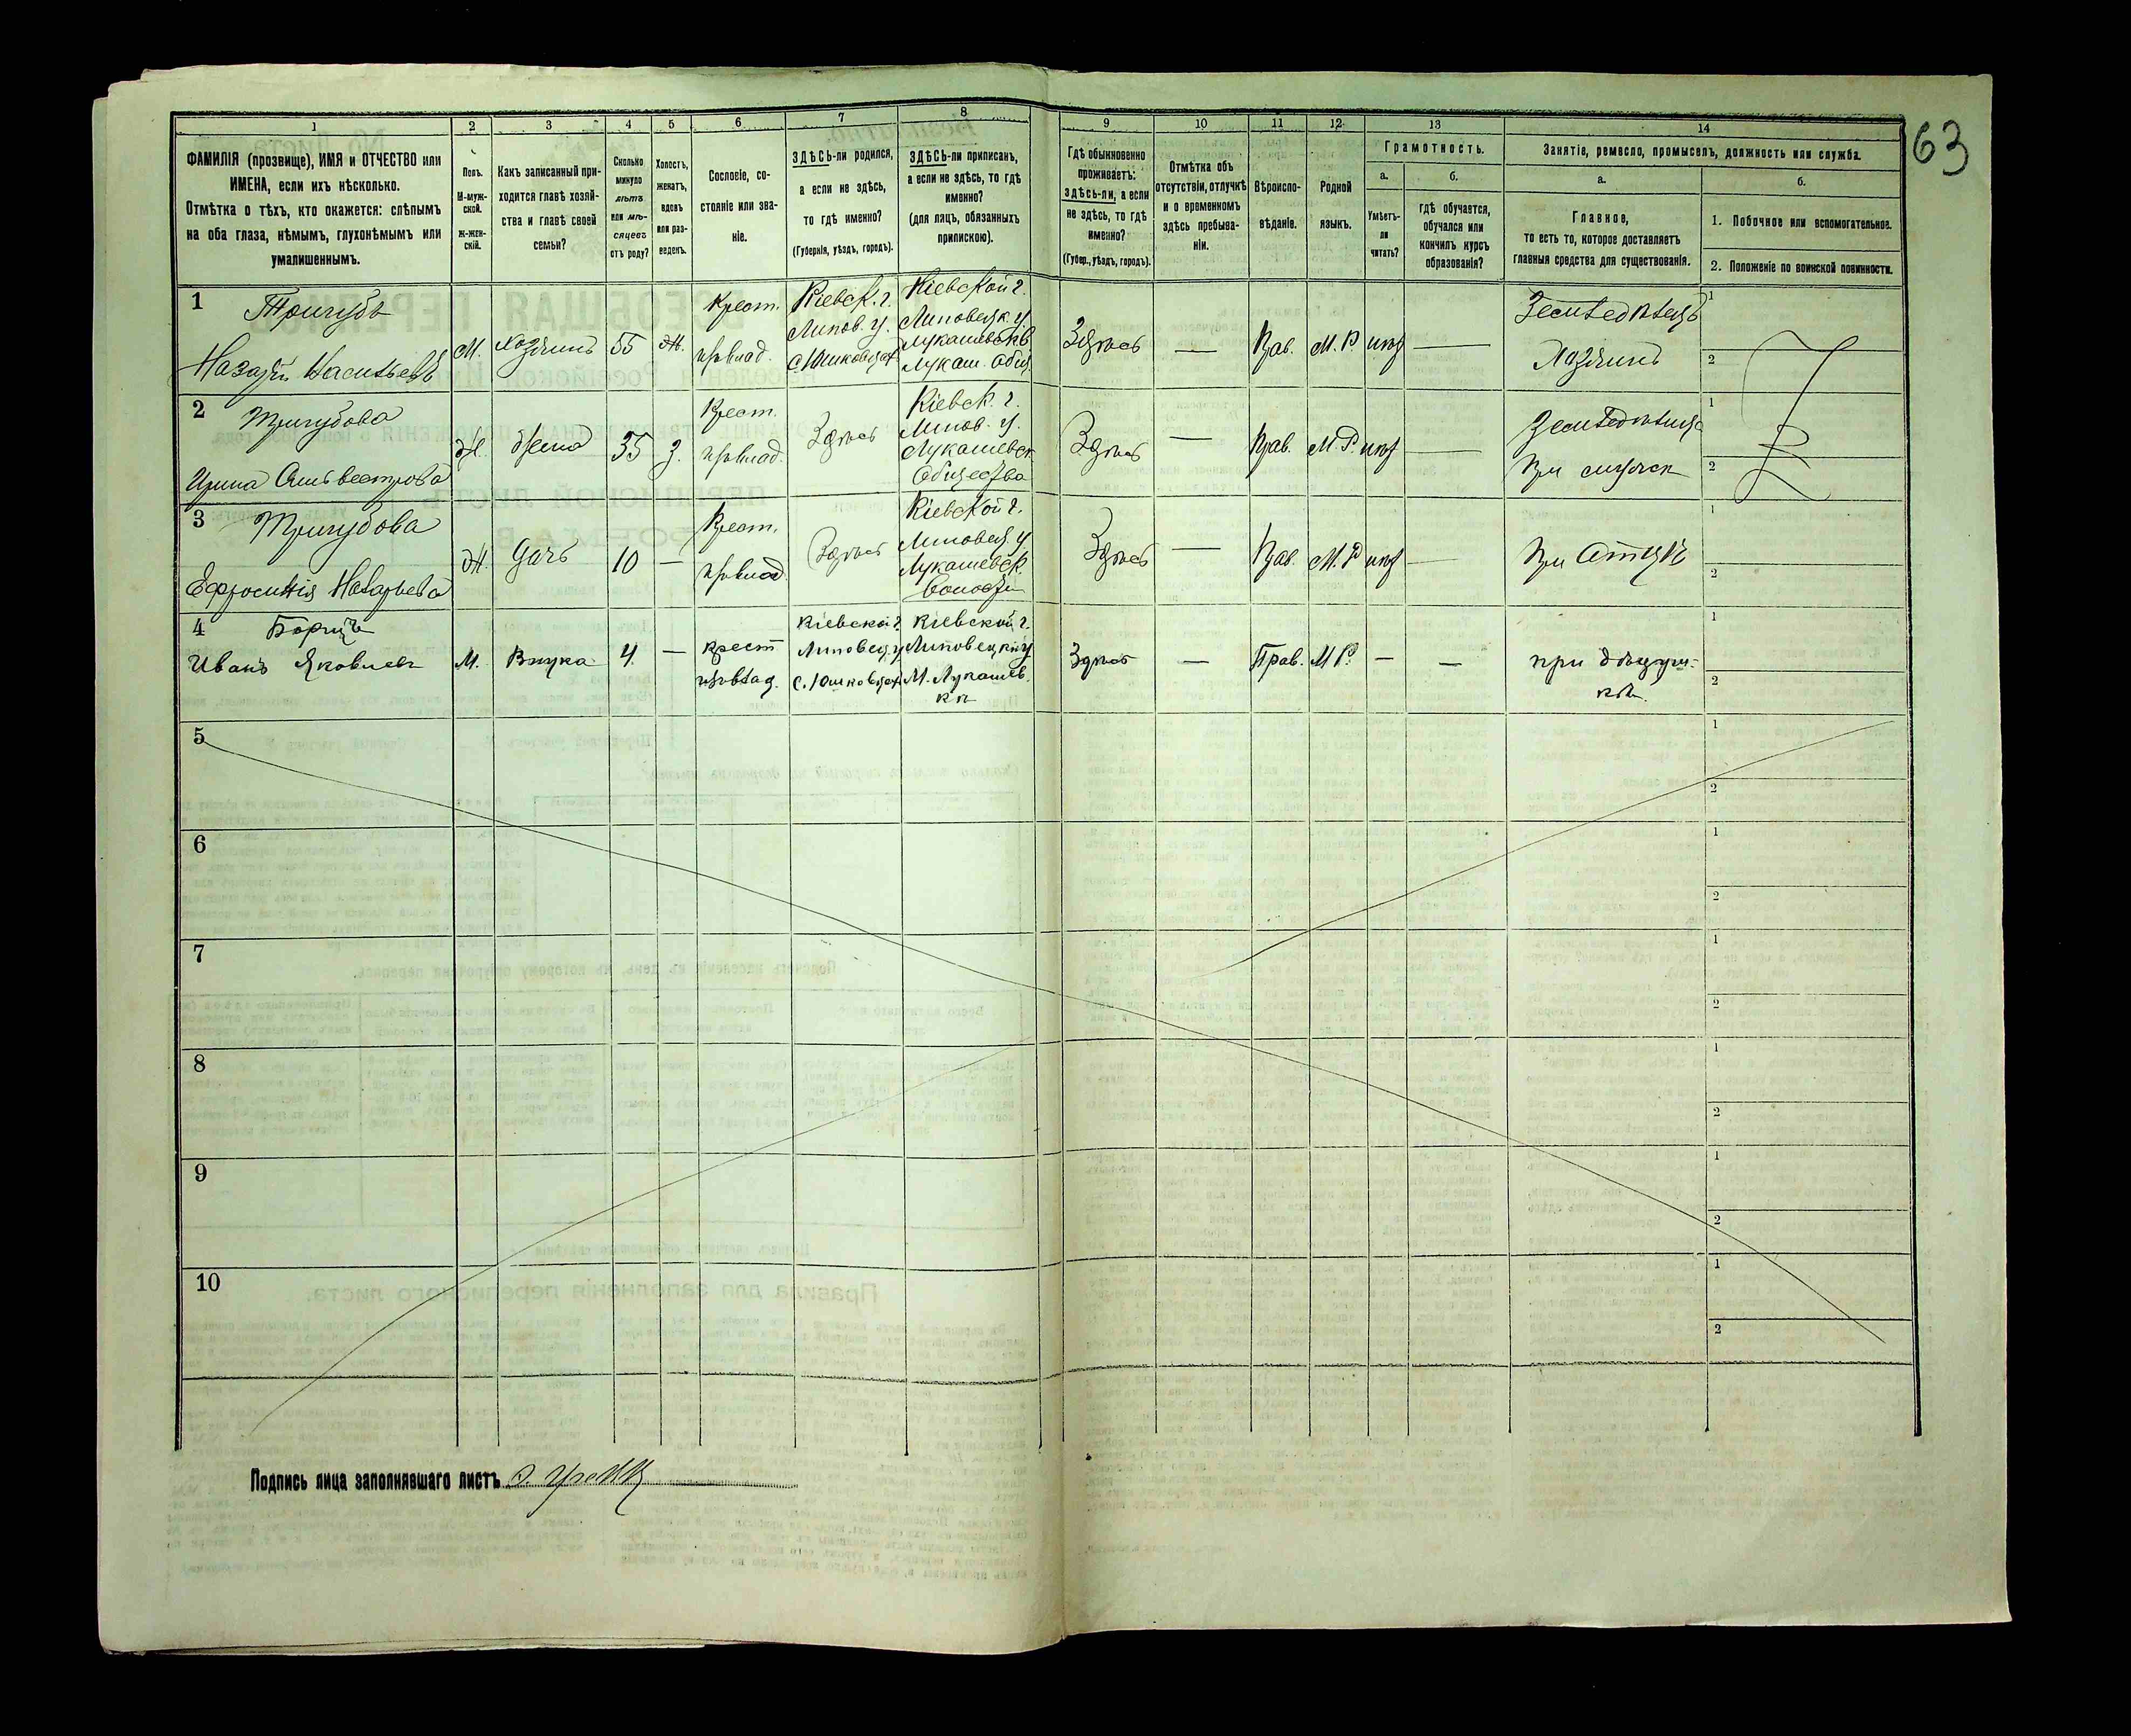 63
1
2
3
4
5
6
7
8
9
10
11
12
13
14
ФАМИЛІЯ (прозвище), ИМЯ и ОТЧЕСТВО или
ИМЕНА, если ихъ нѣсколько.
Отмѣтка о тѣхъ, кто окажется: слѣпымъ
на оба глаза, нѣмымъ, глухонѣмымъ или
умалишеннымъ.
Полъ.
М-муж-
ской.
Ж-жен-
скій.
Какъ записанный при-
ходится главѣ хозяй-
ства и главѣ своей
семьи?
Сколько
минуло
лѣтъ
или мѣ-
сяцевъ
отъ роду?
Холостъ,
женатъ,
вдовъ
или раз-
веденъ.
Сословіе, со-
стояніе или зва-
ніе.
ЗДѢСЬ-ли родился,
а если не здѣсь,
то гдѣ именно?
(Губернія, уѣздъ, городъ).
ЗДѢСЬ-ли приписанъ,
а если не здѣсь, то гдѣ
именно?
(для лицъ, обязанныхъ
припискою).
Гдѣ обыкновенно
проживаетъ:
здѣсь-ли, а если
не здѣсь, то гдѣ
именно?
(Губер., уѣздъ, городъ).
Отмѣтка объ
отсутствіи, отлучкѣ
и о временномъ
здѣсь пребыва-
ніи.
Вѣроиспо-
вѣданіе.
Родной
языкъ.
Грамотность.
а.
Умѣетъ-
ли
читать?
б.
гдѣ обучается,
обучался или
кончилъ курсъ
образованія?
Занятіе, ремесло, промыселъ, должность или служба.
а.
Главное,
то есть то, которое доставляетъ
главныя средства для существованія.
б.
1. Побочное или вспомогательное.
2. Положеніе по воинской повинности.
1
Тригубъ
Назарій Васильевъ
М.
Хозяинъ
55
Ж.
Крест.
Кіевск. г.
Липов. у.
с. Юшковцах
Кіевской г.
Липовецк. у
Лукаш. Общ.
Здѣсь
—
Прав.
М. Р.
—
Земледѣлецъ
Хозяинъ
1
2
2
Тригубова
Ирина Сильвестрова
Ж.
Жена
35
З.
Крест.
Здѣсь
Кіевск. г.
Липов. у.
Лукашевск
Общества
Здѣсь
—
Прав.
М. Р.
—
При мужѣ
1
2
3
Тригубова
Ефросинія Назарьева
Ж.
Дочь
10
—
Крест.
Здѣсь
Кіевской г.
Липовец. у
Лукашевск.
Волости
Здѣсь
—
Прав.
М. Р
—
При Отцѣ
1
2
4
Иванъ Яковлевъ
М.
Внука
4.
—
крест
Кіевской г.
Липовец. у
с. Юшковцах
Кіевской г.
Липовецкій у
М. Лукашев.
кѣ
Здѣсь
—
Прав.
М Р.
—
—
при дѣдуш-
кѣ.
1
2
5
1
2
6
1
2
7
1
2
8
1
2
9
1
2
10
1
2
Подпись лица заполнявшаго листъ